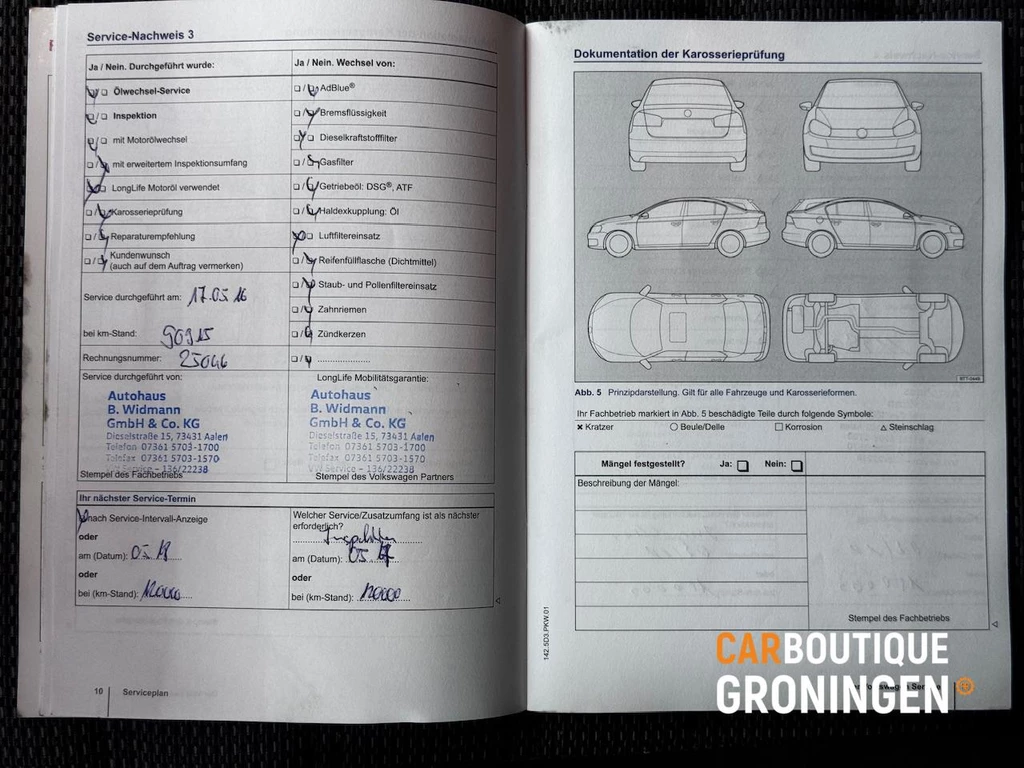 Service-Nachweis 3
Ja / Nein. Durchgeführt wurde:
Ölwechsel-Service
Inspektion
mit Motorölwechsel
mit erweitertem Inspektionsumfang
LongLife Motoröl verwendet
Karosserieprüfung
Reparaturempfehlung
Kundenwunsch
(auch auf dem Auftrag vermerken)
Service durchgeführt am: 17.05.16
bei km-Stand: 90915
Rechnungsnummer: 25046
Ja / Nein. Wechsel von:
AdBlue®
Bremsflüssigkeit
Dieselkraftstofffilter
Gasfilter
Getriebeöl: DSG®, ATF
Haldexkupplung: Öl
Luftfiltereinsatz
Reifenfüllflasche (Dichtmittel)
Staub- und Pollenfiltereinsatz
Zahnriemen
Zündkerzen
Service durchgeführt von:
Autohaus
B. Widmann
GmbH & Co. KG
Dieselstraße 15, 73431 Aalen
Telefon 07361 5703-1700
Telefax 07361 5703-1570
VW Service - 136/22238
Stempel des Fachbetriebs
LongLife Mobilitätsgarantie:
Autohaus
B. Widmann
GmbH & Co. KG
Dieselstraße 15, 73431 Aalen
Telefon 07361 5703-1700
Telefax 07361 5703-1570
VW Service - 136/22238
Stempel des Volkswagen Partners
Ihr nächster Service-Termin
nach Service-Intervall-Anzeige
oder
am (Datum): 05.18
oder
bei (km-Stand): 120000
Welcher Service/Zusatzumfang ist als nächster
erforderlich?
Inspektion
am (Datum): 05.
oder
bei (km-Stand): 120000
10 Serviceplan
Dokumentation der Karosserieprüfung
Abb. 5 Prinzipdarstellung. Gilt für alle Fahrzeuge und Karosserieformen.
Ihr Fachbetrieb markiert in Abb. 5 beschädigte Teile durch folgende Symbole:
Kratzer
Beule/Delle
Korrosion
Steinschlag
Mängel festgestellt? Ja: Nein:
Beschreibung der Mängel:
Stempel des Fachbetriebs
142.5D3.PKW.01
CARBOUTIQUE
GRONINGEN